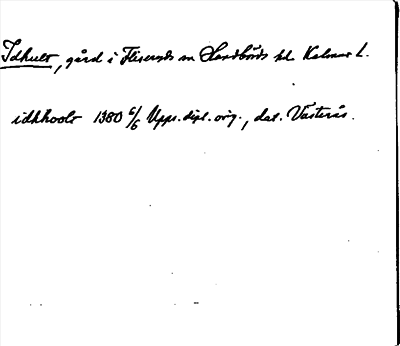 Idhult, gård i Fliseryds sn Handbörds hd Kalmar l.
idhhoolt 1380 6/6 Upps. dipl. orig., dat. Västerås.